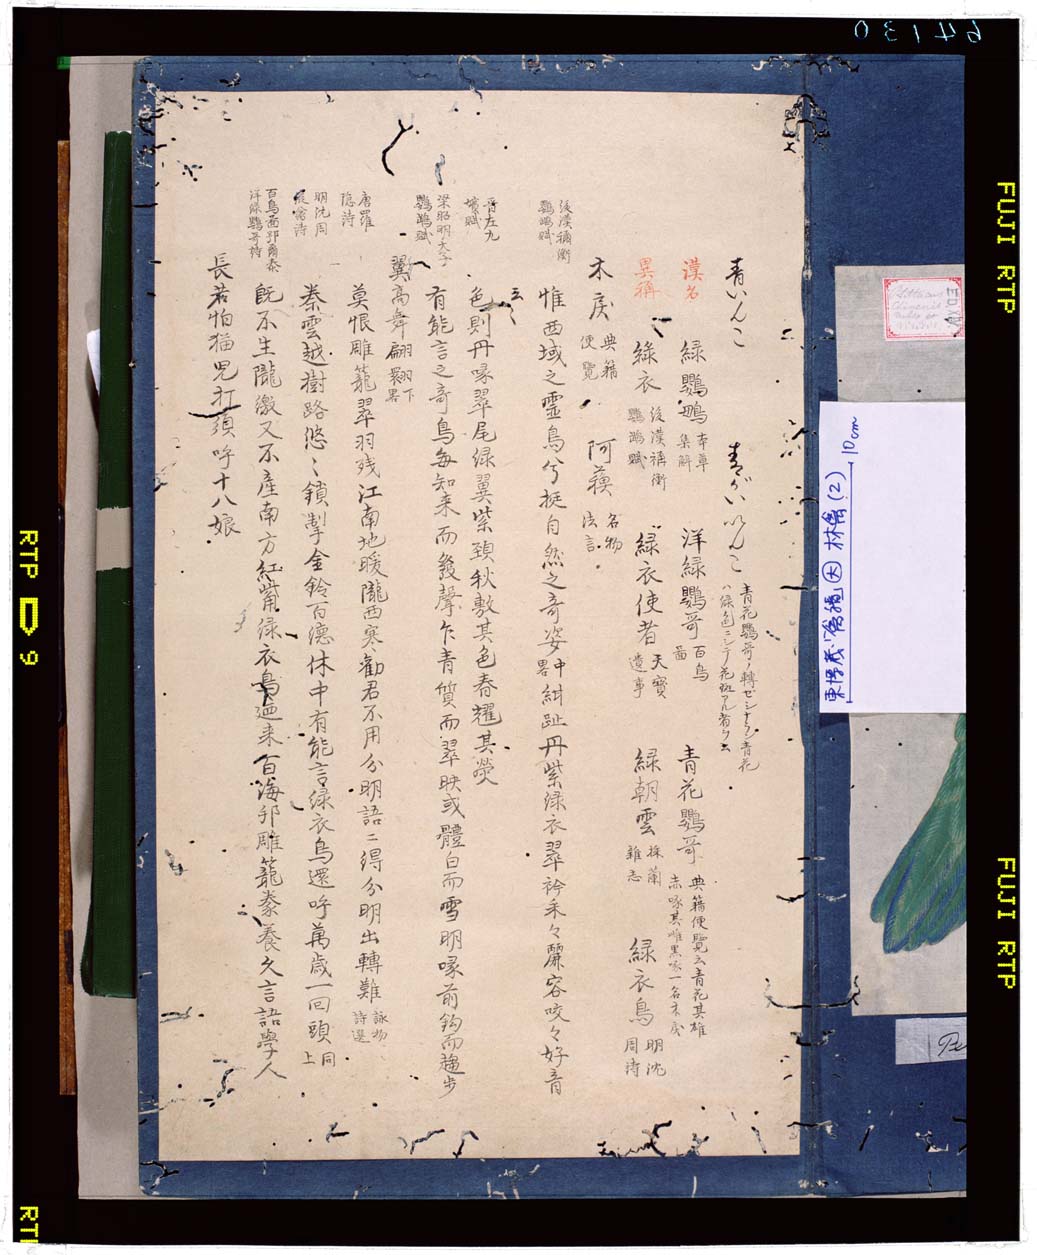 青いんこ 青がいいんこ 青花鸚哥ノ轉ゼシナラン青花
ハ緑色ニシテ花斑アル者ヲ云
漢名 緑鸚鵡 本草集解 洋緑鸚哥 百鳥畵 青花鸚哥 典籍便覧云青花其雄
赤喙其雌黒喙一名木戻
異稱 緑衣 後漢禰衡鸚鵡賦 緑衣使者 天寶遺事 緑朝雲 採蘭雜志 緑衣鳥 明沈周詩
木戻 典籍便覽 阿蘓 名物法言
後漢禰衡鸚鵡賦 惟西域之靈鳥兮挺自然之奇姿中畧紺趾丹紫緑衣翠衿采々麗容咬々好音
云々
晉左九嬪賦 色則丹喙翠尾緑翼紫頸秋敷其色春耀其熒
梁昭明太子鸚鵡賦 有能言之奇鳥每知来而發聲乍青質而翠映或體白而雪明喙前鈎而趨步
翼高舞翩翾下畧
唐羅隐詩 莫恨雕籠翠羽残江南地暖隴西寒勸君不用分明語ニ得分明出轉難 詠物詩選
明沈周 詩 秦雲越樹路悠々鎖掣金鈴百德休中有能言緑衣鳥還呼萬歳一回頭 同上
百鳥畵鄂爾泰洋緑鸚哥詩 既不生隴徼又不產南方紅觜緑衣鳥迤来百海邦雕籠豢養久言語學人
長若怕猫児打須呼十八娘
64130
東博蔵 (2)
10cm
FUJI RTP
FUJI RTP
RTP 9
RTP